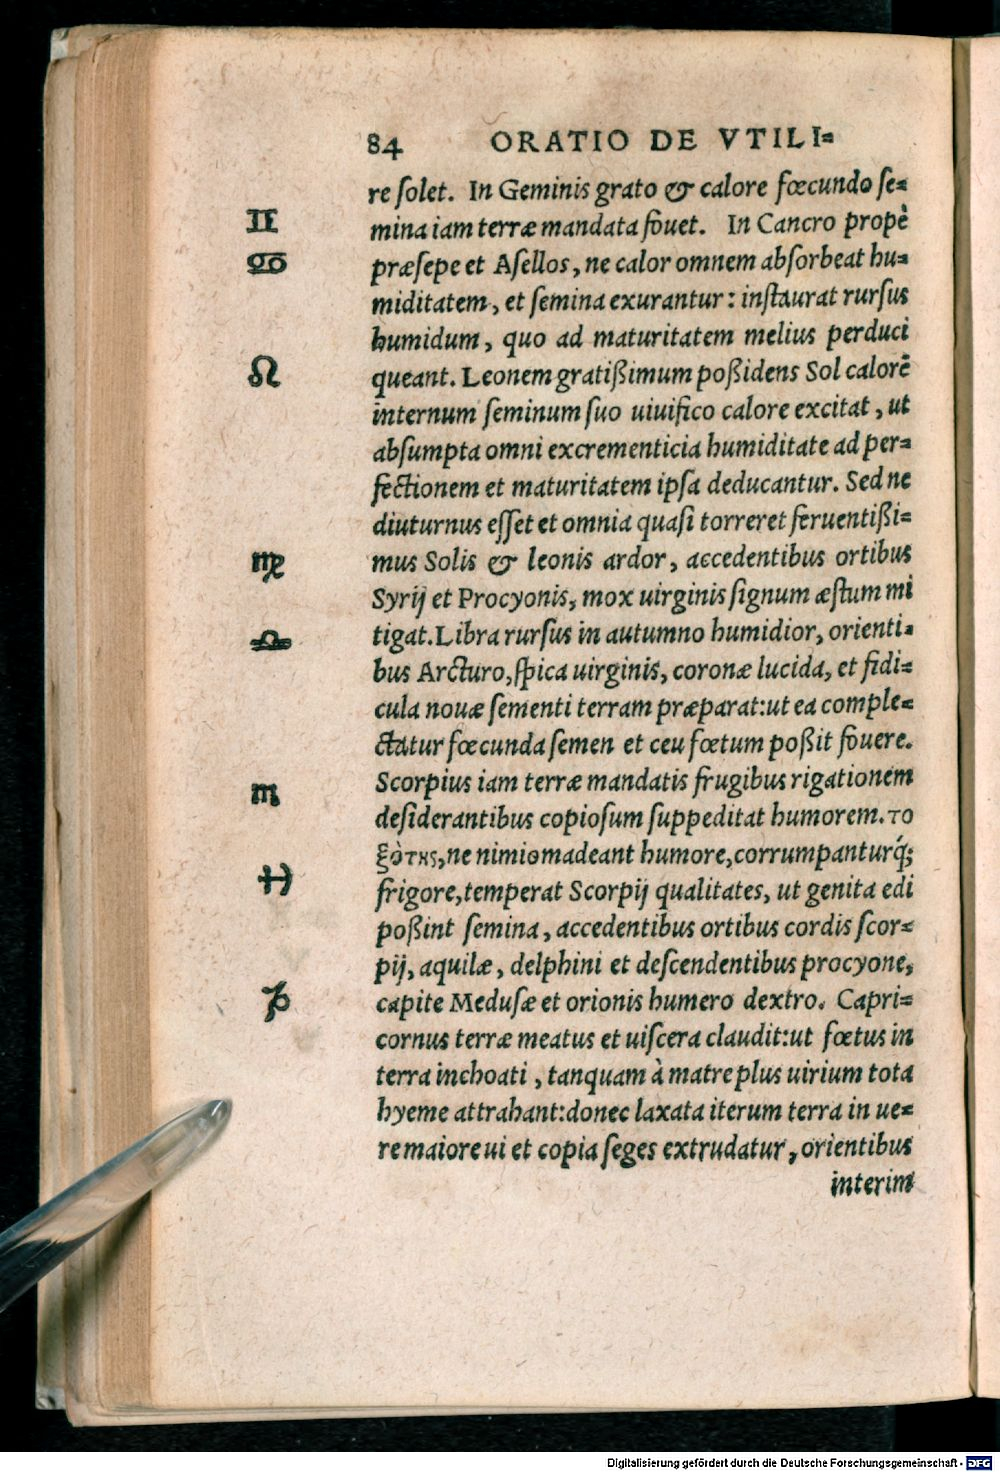 84 ORATIO DE VTILI=
re solet. In Geminis grato & calore fœcundo se=
♊ mina iam terræ mandata fouet. In Cancro propè
♋ præsepe et Asellos, ne calor omnem absorbeat hu=
miditatem, et semina exurantur: instaurat rursus
humidum, quo ad maturitatem melius perduci
♌ queant. Leonem gratißimum poßidens Sol calorē
internum seminum suo uiuifico calore excitat, ut
absumpta omni excrementicia humiditate ad per=
fectionem et maturitatem ipsa deducantur. Sed ne
diuturnus esset et omnia quasi torreret feruentißi=
♍ mus Solis & leonis ardor, accedentibus ortibus
Syrij et Procyonis, mox uirginis signum æstum mi
♎ tigat. Libra rursus in autumno humidior, orienti=
bus Arcturo, spica uirginis, coronæ lucida, et fidi=
cula nouæ sementi terram præparat: ut ea comple=
ctatur fœcunda semen et ceu fœtum poßit fouere.
♏ Scorpius iam terræ mandatis frugibus rigationem
desiderantibus copiosum suppeditat humorem. το
ξότης, ne nimio madeant humore, corrumpanturq́;
♓ frigore, temperat Scorpij qualitates, ut genita edi
poßint semina, accedentibus ortibus cordis scor=
pij, aquilæ, delphini et descendentibus procyone,
♑ capite Medusæ et orionis humero dextro. Capri=
cornus terræ meatus et uiscera claudit: ut fœtus in
terra inchoati, tanquam à matre plus uirium tota
hyeme attrahant: donec laxata iterum terra in ue=
re maiore ui et copia seges extrudatur, orientibus
interim
Digitalisierung gefördert durch die Deutsche Forschungsgemeinschaft - DFG